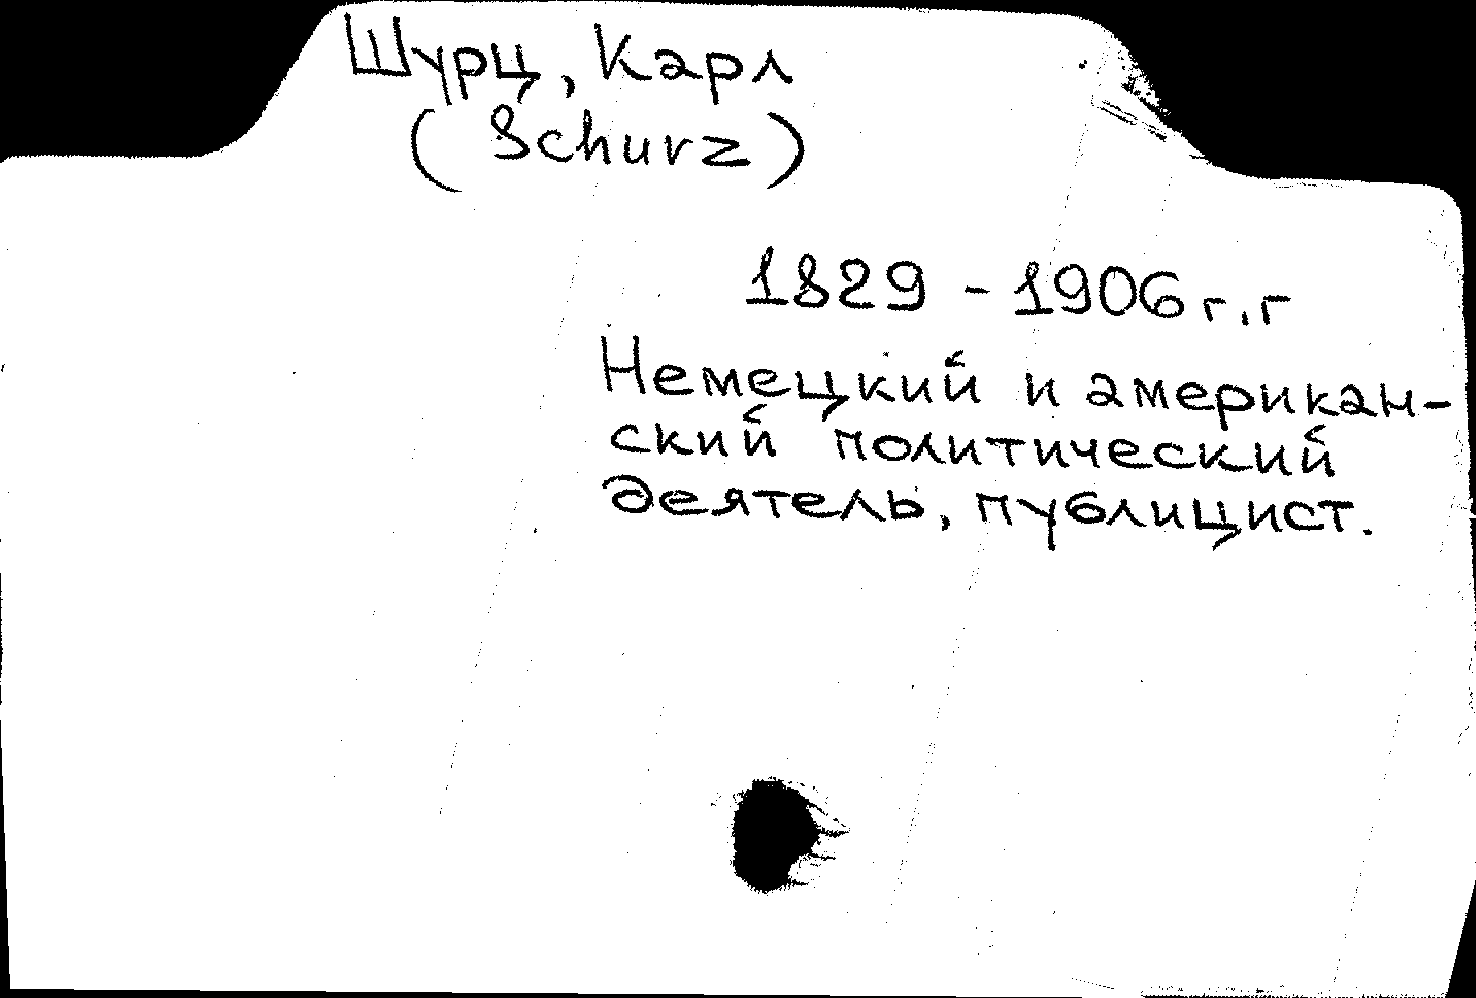 Шурц, Карл
(Schurz)
1829 - 1906 г.г
Немецкий и американ-
ский политический
деятель, публицист.